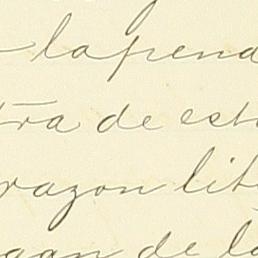 lapend
tra de est
razon lit
gan de la